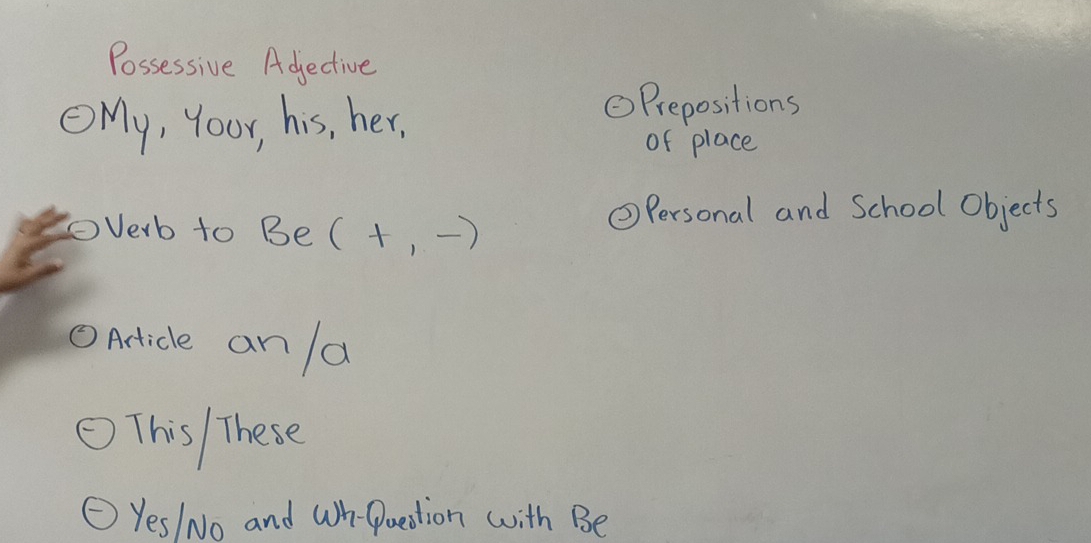 Possessive Adjective
My, Your, his, her,
Verb to Be ( + , - )
Article an/a
This/These
Yes/No and Wh-Question with Be
Prepositions
of place
Personal and School Objects